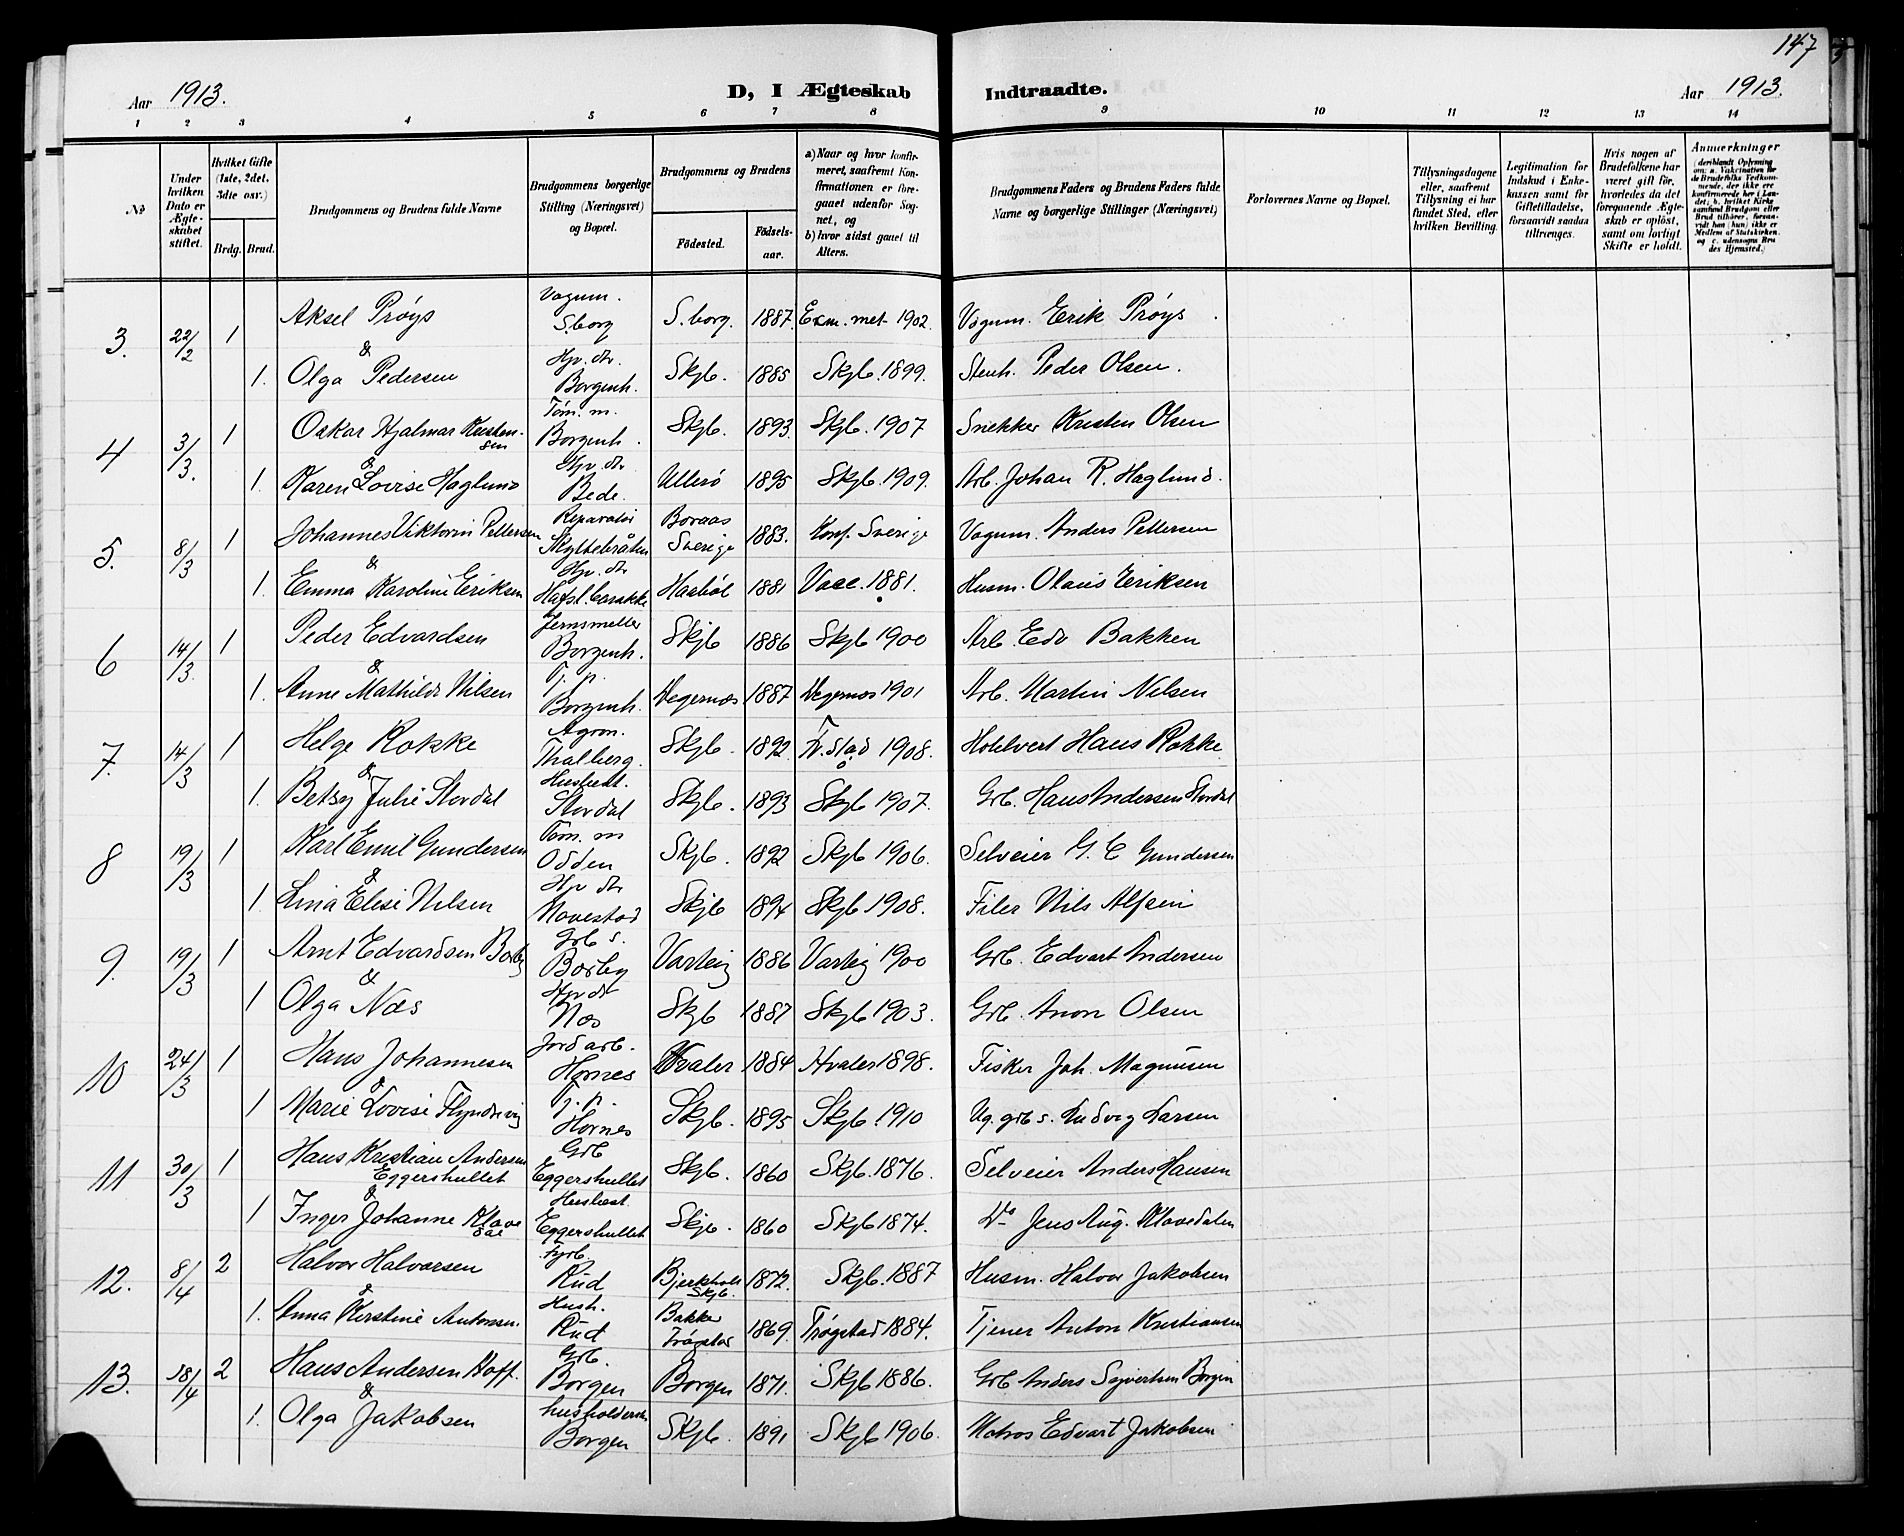 147
Aar 1913.
D, I Ægteskab Indtraadte.
Aar 1913.
1 2 3 4 5 6 7 8 9 10 11 12 13 14
No
Under hvilken Dato er Ægteskabet stiftet.
Hvilket Gifte (1ste, 2det, 3die osv.)
Brdg. Brud.
Brudgommens og Brudens fulde Navne
Brudgommens borgerlige Stilling (Næringsvei) og Bopæl.
Brudgommens og Brudens
Fødested. Fødselsaar.
a) Naar og hvor konfirmeret, saafremt Konfirmationen er foregaaet udenfor Sognet, og
b) hvor sidst gaaet til Alters.
Brudgommens Faders og Brudens Faders fulde Navne og borgerlige Stillinger (Næringsvei)
Forlovernes Navne og Bopæl.
Tillysningsdagene eller, saafremt Tillysning ei har fundet Sted, efter hvilken Bevilling.
Legitimation for Indskud i Enkekassen samt for Giftetilladelse, forsaavidt saadan tiltrænges.
Hvis nogen af Brudefolkene har været gift før, hvorledes da det foregaaende Ægteskab er opløst, samt om lovligt Skifte er holdt.
Anmærkninger
3. 22/2 1 Aksel Prøys Vognm. S.borg S.borg. 1887 Exm. met 1902. Vognm. Erik Prøys
&
1. Olga Pedersen Hjv. dtr. Borgenh. Skjb. 1885 Skjb. 1899. Stenh. Peder Olsen.
4 3/3. 1 Oskar Hjalmar Kristensen Tøm. m. Borgenh. Skjb. 1893. Skjb. 1907 Snekker Kristen Olsen
&
1. Karen Lovise Haglund Hjv. dtr Bede. Ullerø 1895 Skjb. 1909. Arb. Johan R. Haglund.
5. 8/3 1 Johannes Viktorin Pettersen Reparatør Boraas Sverige 1883. Konf. Sverige Vognm. Anders Pettersen
&
1. Emma Karoline Eriksen Hjv. dtr Hafsl. barakke Hasløl 1881 Vacc. 1881. Husm. Olaus Eriksen
6 14/3. 1 Peder Edvardsen Jernsmelter Borgenh. Skjb 1886 Skjb 1900 Arb. Edv Bakken
&
1. Anne Mathilde Nilsen Tj. p. Borgenh. Vegernæs 1887 Vegernæs 1901 Arb. Martin Nilsen
7. 14/3 1 Helge Rokke Agron. Thalberg. Skjb. 1892 Fr.stad 1908. Hotelvert Hans Rokke
&
1. Betsy Julie Stordal Husbest. Stordal Skjb. 1893 Skjb 1907. Grb. Hans Andersen Stordal
8 19/3 1 Karl Emil Gundersen Tøm. m Odden Skjb. 1892 Skjb 1906. Selveier G. E Gundersen
&
1. Lina Elise Nilsen Hjv dtr Navestad Skjb 1894 Skjb 1908. Filer Nils Alfsen
9. 19/3 1 Arnt Edvardsen Borby Grb s. Borby Varteig 1886 Varteig 1900 Grb. Edvart Andersen
&
1 Olga Næs Hjv dt Næs Skjb 1887 Skjb 1903. Grb. Anon Olsen
10 24/3 1 Hans Johannesen Jordarb. Hornes Hvaler 1884 Hvaler 1898. Fisker Joh. Magnusen
&
1 Marie Lovise Flyndrevig Tj. p. Hornes Skjb. 1895 Skjb. 1910 Ug. grb s. Ludvig Larsen
11 30/3 1 Hans Kristian Andersen Eggershullet Grb Eggershullet Skjb. 1860 Skjb. 1876. Selveier Anders Hansen
&
1 Inger Johanne Klavedal Husbest. Eggershullet Skjb. 1860 Skjb 1874. Do Jens Aug. Klavedalen
12. 8/4 2 Halvor Halvorsen Fyrb. Rud Bjerkholt Skjb. 1872. Skjb. 1887 Husm. Halvor Jakobsen
&
1. Anna Kirstine Antonsen Hush. Rud Bakker Trøgstad 1869. Trøgstad 1884. Tjener Anton Kristiansen
13. 18/4 2 Hans Andersen Hoff. Grb. Borgen Borgen 1871. Skjb 1886. Grb Anders Syvertsen Borgen
&
1. Olga Jakobsen husholderske Borgen Skjb. 1891 Skjb 1906. Matros Edvart Jakobsen